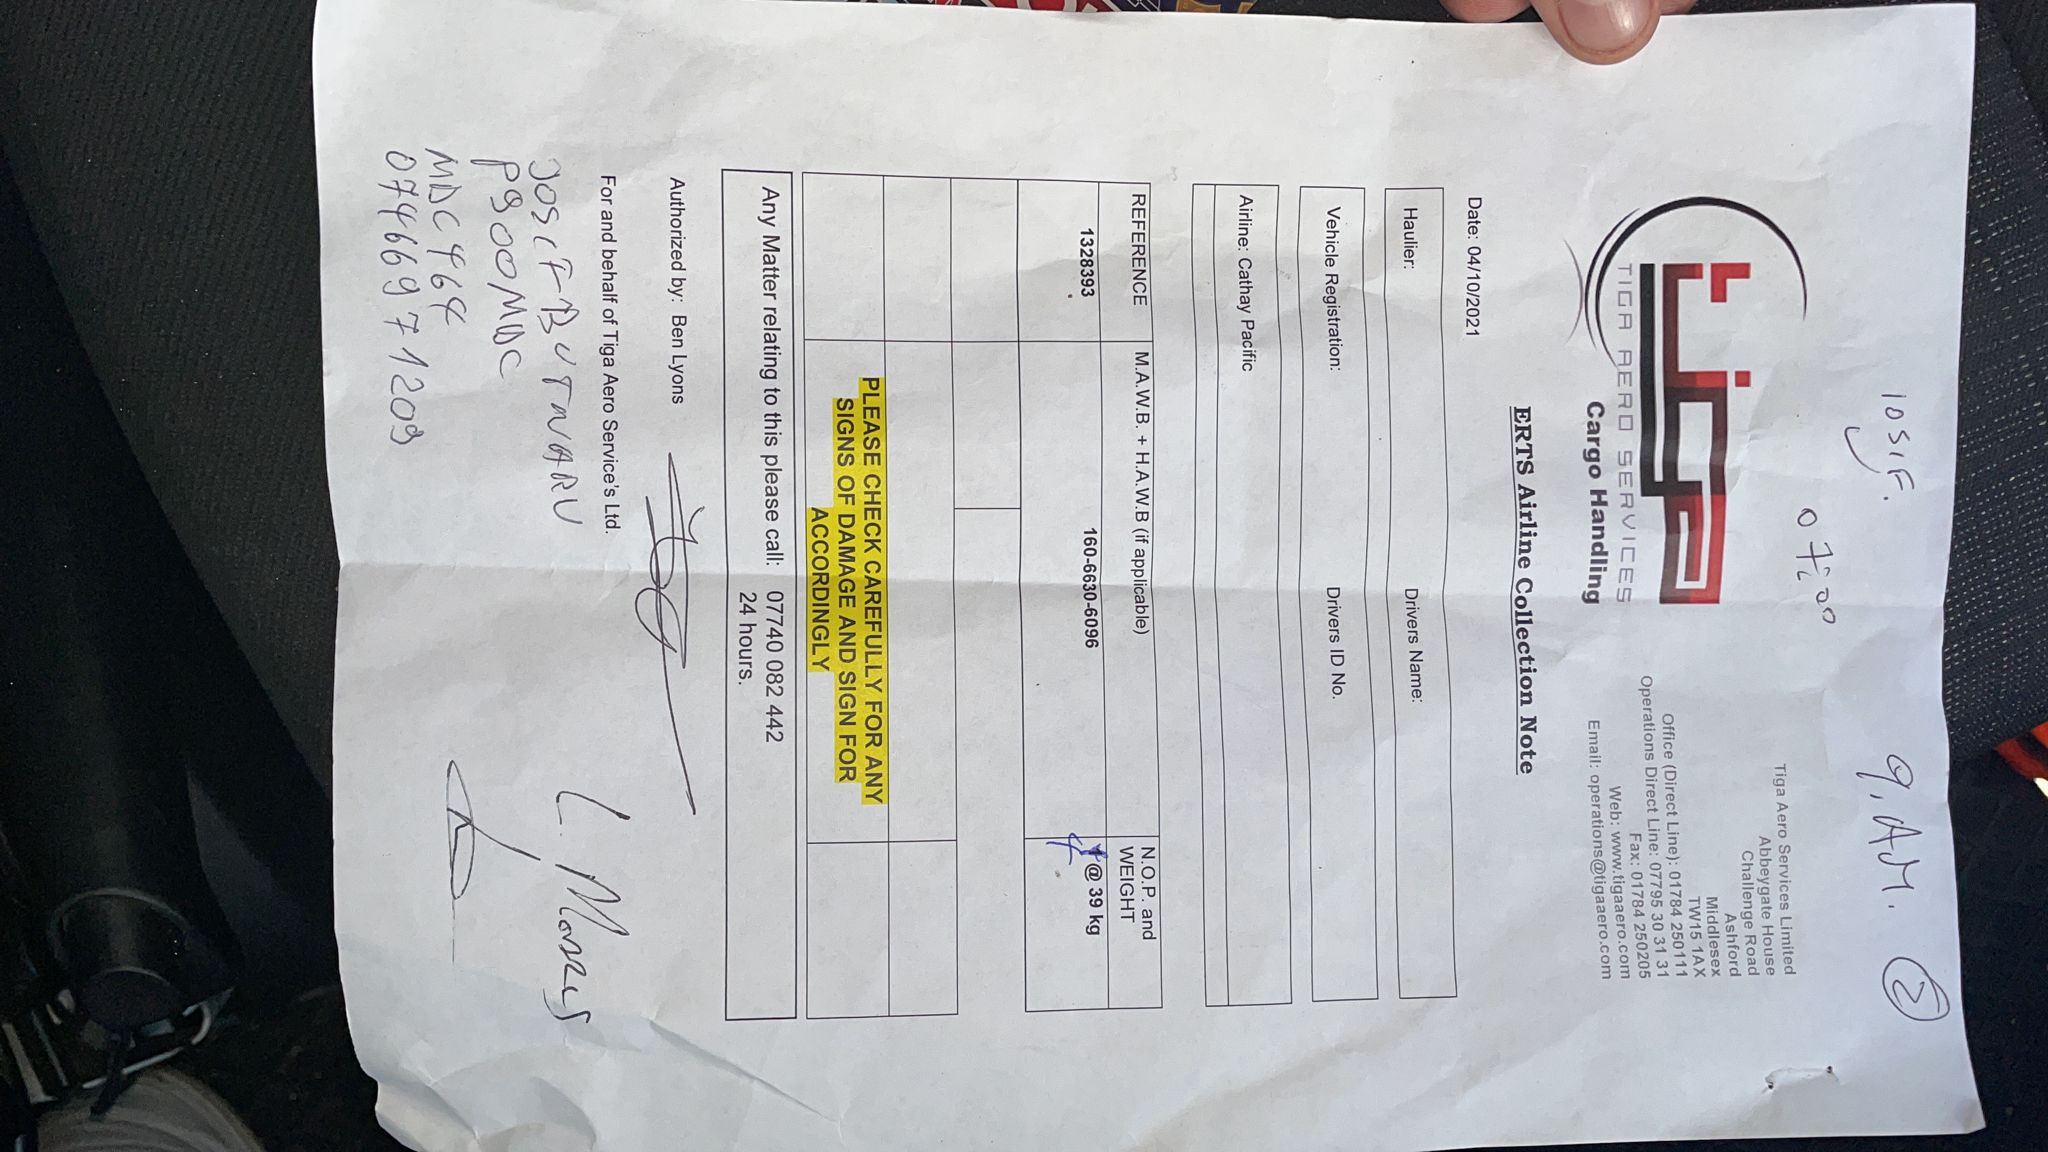 IOSIF.
07:00
9. AM. 2
tiga
TIGA AERO SERVICES
Cargo Handling
Tiga Aero Services Limited
Abbeygate House
Challenge Road
Ashford
Middlesex
TW15 1AX
Office (Direct Line): 01784 250111
Operations Direct Line: 07795 30 31 31
Fax: 01784 250205
Web: www.tigaaero.com
Email: operations@tigaaero.com
ERTS Airline Collection Note
Date: 04/10/2021
Haulier: Drivers Name:
Vehicle Registration: Drivers ID No.
Airline: Cathay Pacific
REFERENCE M.A.W.B. + H.A.W.B (if applicable) N.O.P. and
WEIGHT
1328393 160-6630-6096 @ 39 kg
PLEASE CHECK CAREFULLY FOR ANY
SIGNS OF DAMAGE AND SIGN FOR
ACCORDINGLY
Any Matter relating to this please call: 07740 082 442
24 hours.
Authorized by: Ben Lyons
For and behalf of Tiga Aero Service's Ltd.
IOSIF BUTNARU
P900MDC
MDC464
07466971209